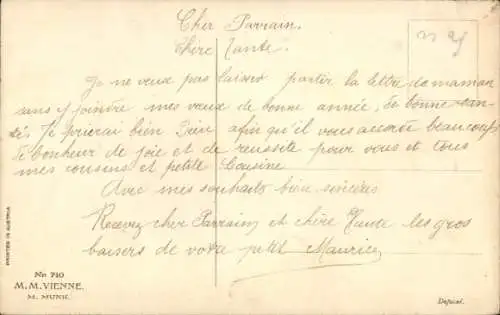 Cher Parrain.
Chère Tante.
Je ne veux pas laisser partir la lettre de maman
sans y joindre mes vœux de bonne année, de bonne san-
té. Je prierai bien Dieu afin qu'il vous accorde beaucoup
de bonheur de joie et de reussite pour vous et tous
mes cousins et petite Cousine
Avec mes souhaits bien sincères
Recevez cher Parrain et chère Tante les gros
baisers de votre petit Maurice
PRINTED IN AUSTRIA
Nr. 710
M. M. VIENNE.
M. MUNK.
Déposé.